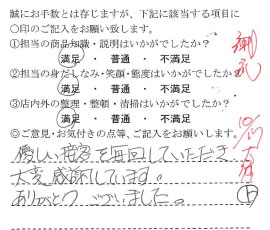 誠にお手数とは存じますが、下記に該当する項目に
○印のご記入をお願い致します。
①担当の商品知識・説明はいかがでしたか?
満足 ・ 普通 ・ 不満足
②担当の身だしなみ・笑顔・態度はいかがでしたか?
満足 ・ 普通 ・ 不満足
③店内外の整理・整頓・清掃はいかがですか?
満足 ・ 普通 ・ 不満足
◎ご意見・お気付きの点等、ご記入をお願いします。
優しい接客を毎回していただき
大変感謝しています。
ありがとうございました。
御礼